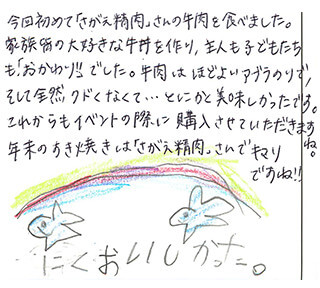 今回初めて「さがえ精肉」さんの牛肉を食べました。
家族皆の大好きな牛丼を作り、主人も子どもたち
も「おかわり!!」でした。牛肉はほどよいアブラのりで、
そして全然クドくなくて…とにかく美味しかったです。
これからもイベントの際に購入させていただきますね。
年末のすき焼きは「さがえ精肉」さんでキマリ
ですね!!
にくおいしかった。